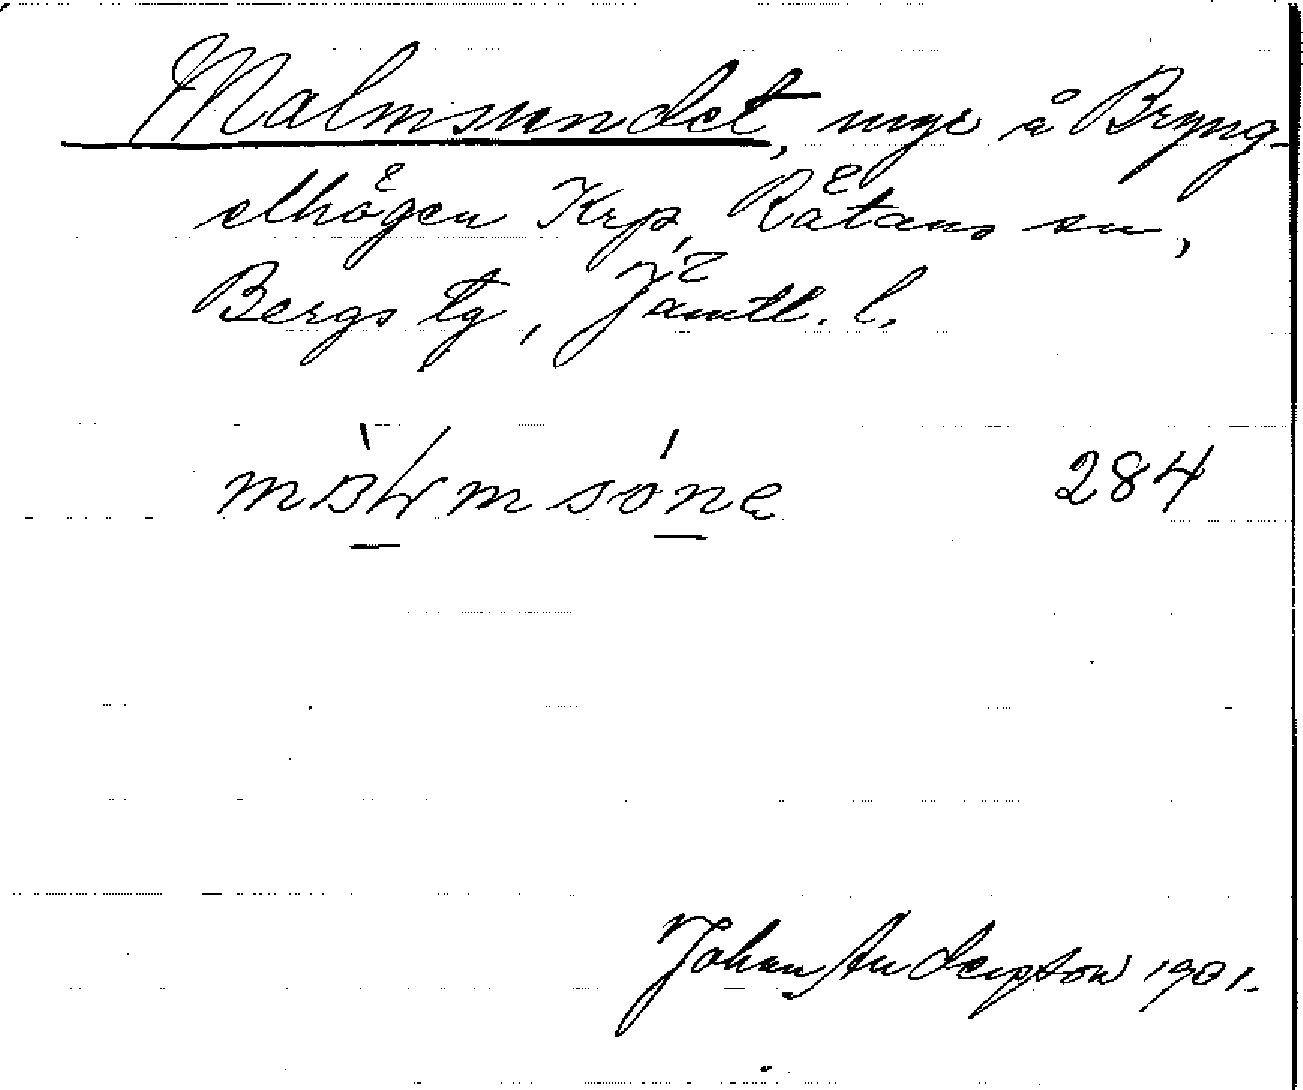 Malmsundet, nyge å Bryng-
elhögen Krp, Råtans sn,
Bergs tg, Jämtl. l.
284
Johan Anderson 1901.